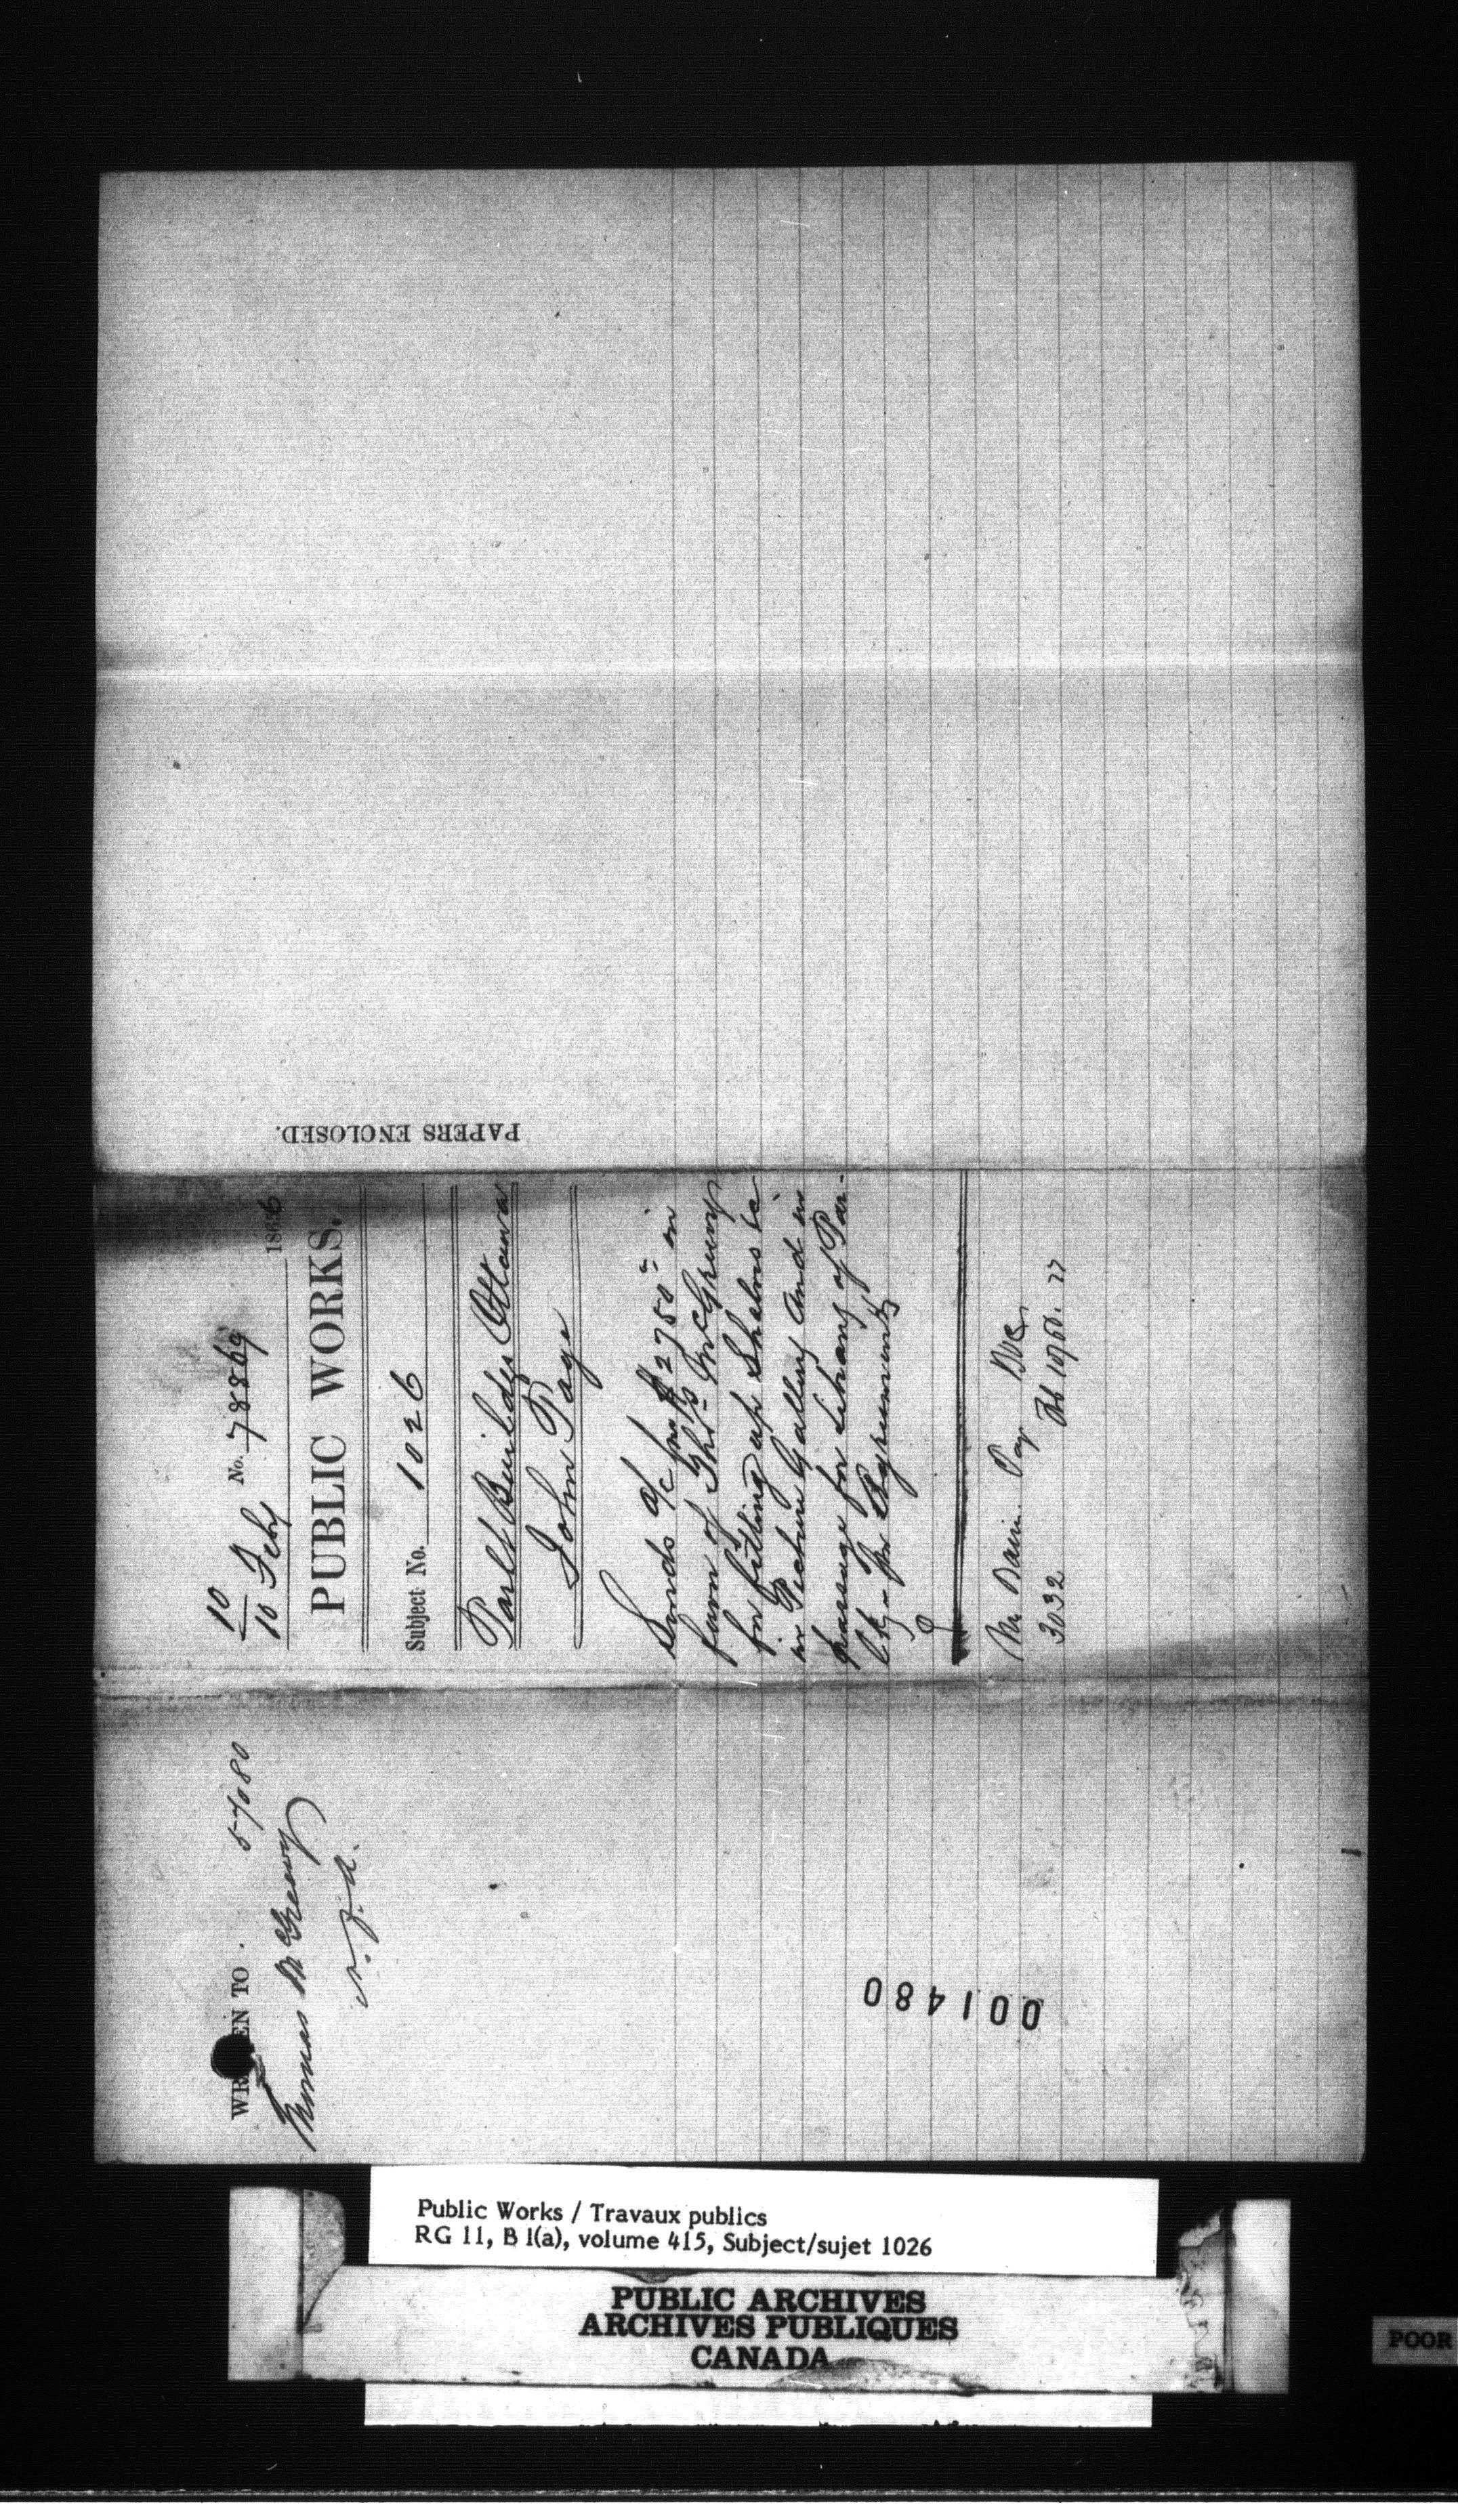 WRITTEN TO . 57080
Thomas McGreevy
10
10 Feby No. 78869 1866
PUBLIC WORKS.
Subject No. 1026
Parlt Buildgs Ottawa
John Page
Sends a/c for $2750 in
favor of Thos McGreevy
for fitting up Shelves &c
in Picture Gallery and in
passage for Library of Par-
lt, - per Agreement
Mr Baine Pay
3032
PAPERS ENCLOSED.
001480
Public Works / Travaux publics
RG 11, B 1(a), volume 415, Subject/sujet 1026
PUBLIC ARCHIVES
ARCHIVES PUBLIQUES
CANADA
POOR